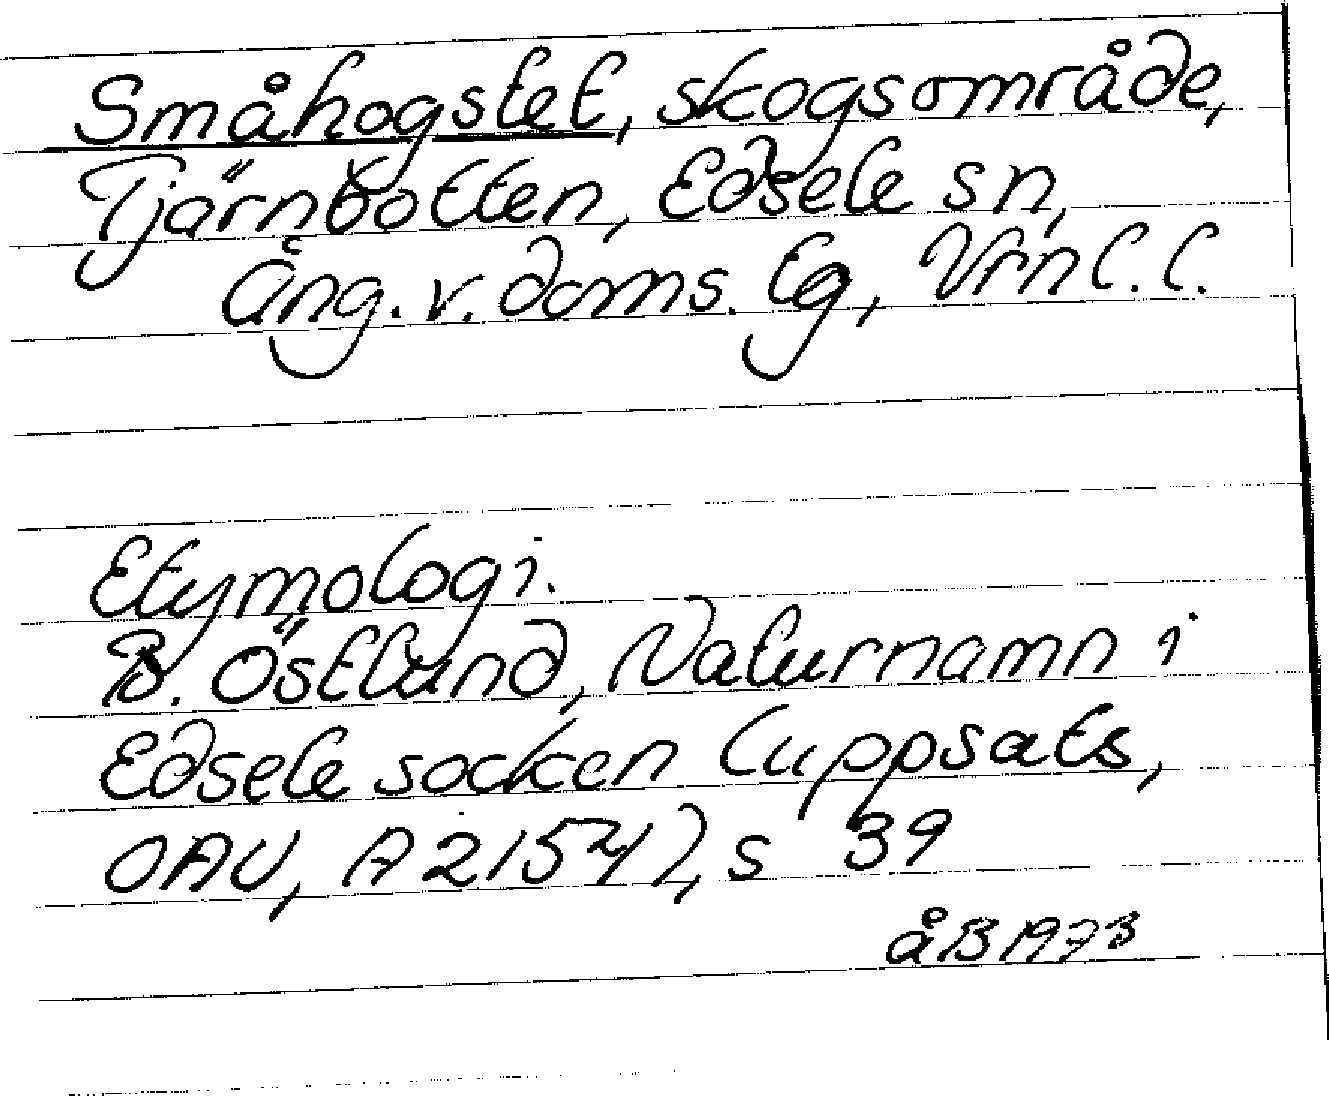 Småhogstet, skogsområde,
Tjärnbotten, Edsele sn,
Ång. v. doms. lg, Vrnl.l.
Etymologi.
B. Östlund, Naturnamn i
Edsele socken (uppsats,
OAU, A 2154), s 39
åB 1973